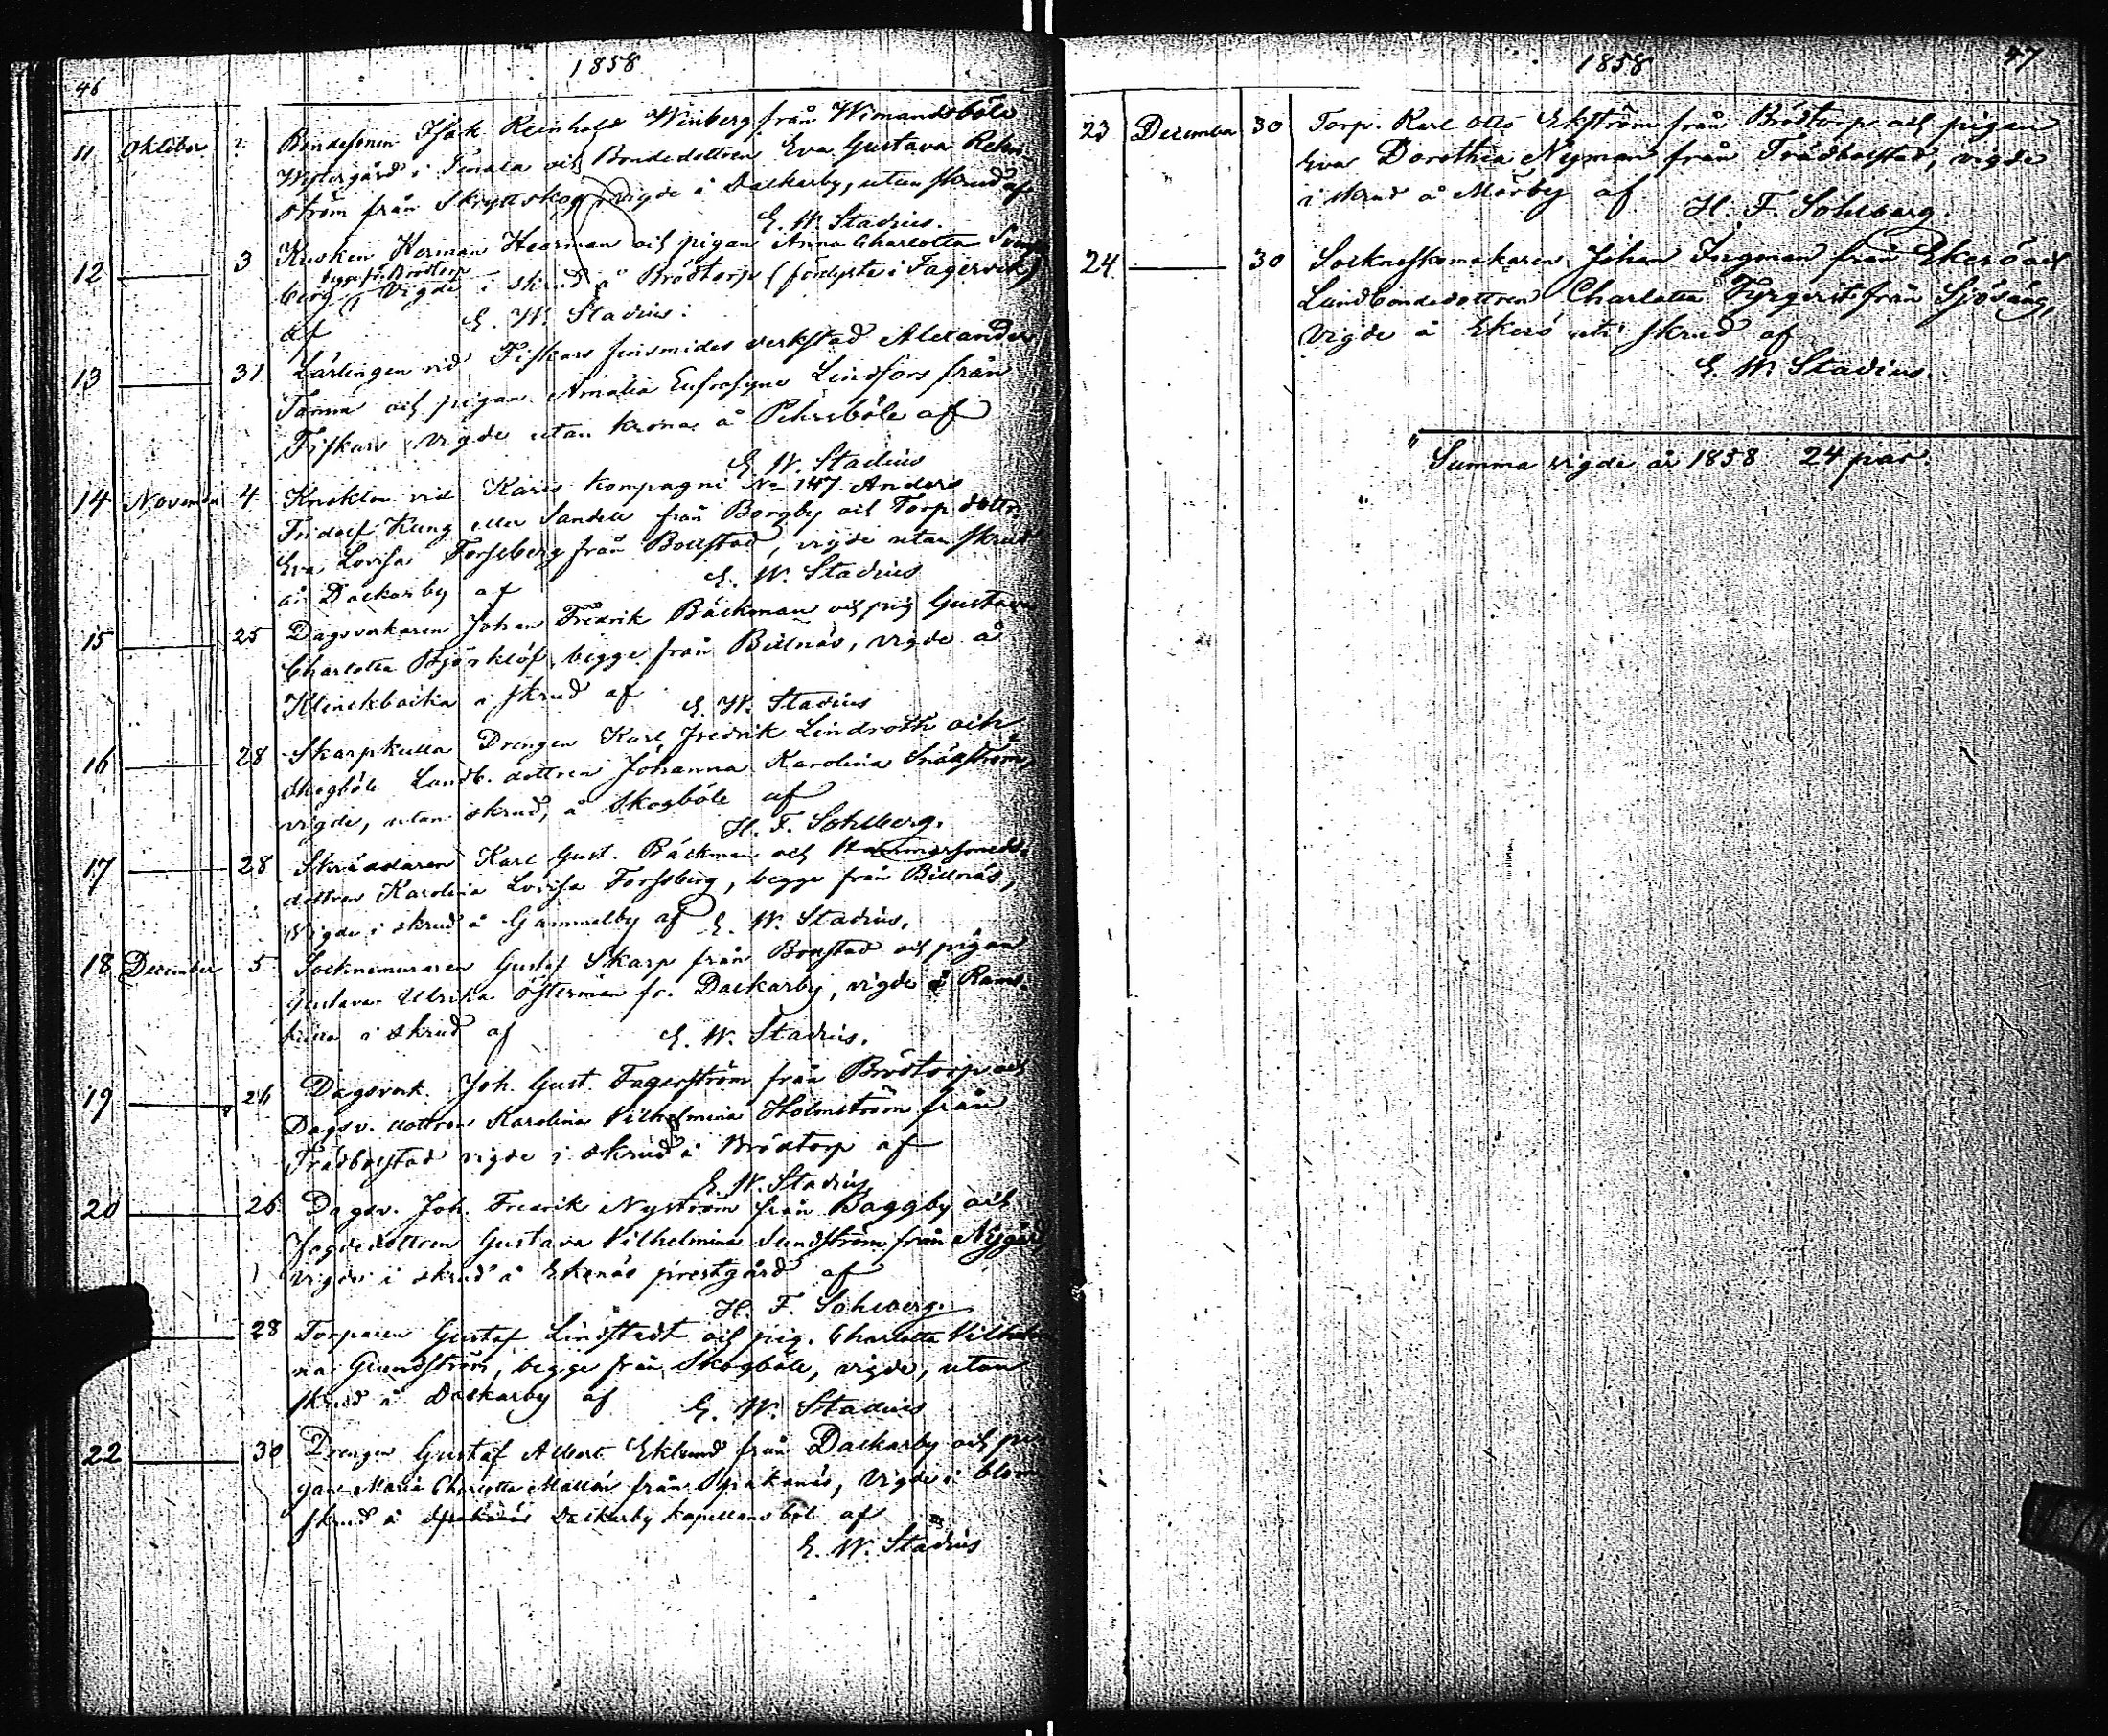 46
1858
11 Oktober 2. Bondesonen Isak Reinhold Winberg från Wimandsböle
Westergård i Tenala och Bondedottren Eva Gustava Rehn-
ström från Skryttskog, vigde å Dackarby, utan skrud af
E. W. Stadius.
12 3 Kusken Herman Hearman och pigan Anna Charlotta
begge fr. Brödtorp
berg, vigde i skrud å Brödtorp (förlyste i Fagervik)
af E. W. Stadius.
13 31 Lärlingen vid Fiskars finsmides verkstad Alexander
Tamm och pigan Amalia Eufrosyne Lindfors från
Fiskars, vigde utan krona å Pehrsböle af
E. W. Stadius
14 November 4 Knekten vid Karis kompagni No 147 Anders
Fridolf Kung eller Sandell från Borgby och Torp.dottr.
Eva Lovisa Forssberg från Bollstad, vigde utan skrud
å Dackarby af E. W. Stadius
15 25 Dagsverkaren Johan Fredrik Bäckman och pig. Gustava
Charlotta Björklöf, begge från Billnäs, vigde å
Klinckbacka i skrud af E. W. Stadius
16 28 Skarpkulla Drengen Karl Fredrik Lindroth och
Skogböle Landb. dottren Johanna Karolina
vigde, utan skrud, å Skogböle af
H. F. Sohlberg.
17 28 Skräddaren Karl Gust. Bäckman och Hammarsmeds-
dottren Karolina Lovisa Forssberg, begge från Billnäs,
Vigde i skrud å Gammelby af E. W. Stadius.
18 December 5 Socknemuraren Gustaf Skarp från Bonstad och pigan
Gustava Ulrika Österman fr. Dackarby, vigde å Rams-
kulla i skrud af E. W. Stadius.
19 26 Dagsverk. Joh. Gust. Fagerström från Brödtorp och
Dagsv. dottren Karolina Vilhelmina Holmström från
Trädbolstad vigde i skrud å Brödtorp af
E. W. Stadius
20 26 Dagsv. Joh. Fredrik Nyström från Baggby och
Fogdedottren Gustava Vilhelmina Sundström från Nygård,
vigde i skrud å Ekenäs prestgård af
H. F. Sohlberg.
28 Torparen Gustaf Lindstedt och pig. Charlotta Vilhelmi-
na Grundström, begge från Skogböle, vigde, utan
skrud å Dackarby af E. W. Stadius
22 30 Drengen Gustaf Albert Eklund från Dackarby och pi-
gan Maria Charlotta Mallén från Spakanäs, Vigde i blom-
skrud å Spakanäs Dackarby kapellans bol af
E. W. Stadius
1858
47
23 December 30 Torp. Karl Otto Ekström från Brödtorp och pigan
Eva Dorothea Nyman från Trädbolstad, vigde
i skrud å Mörby af H. F. Sohlberg.
24 30 Sockneskomakaren Johan Forgman från Ekerö och
Landbondedottren Charlotta från Sjösäng,
Vigde å Ekerö uti skrud af
E. W. Stadius.
Summa vigde år 1858 24 par.